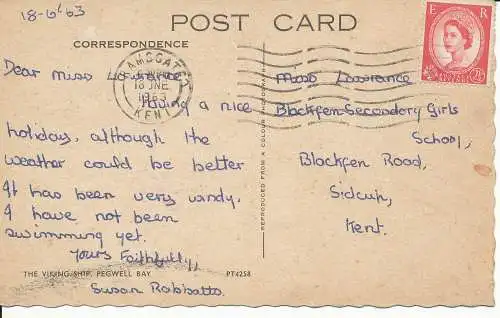 18-6-63
POST CARD
CORRESPONDENCE
RAMSGATE
18 JNE
1963
KENT
E R
Dear Miss Lawrance
Having a nice
holiday, although the
weather could be better
It has been very windy.
I have not been
swimming yet.
Yours Faithfully,
Susan Rabbatts
THE VIKING SHIP, PEGWELL BAY
PT4258
REPRODUCED FROM A COLOUR PHOTOGRAPH
Miss Lawrance
Blackfen Secondary Girls
School,
Blackfen Road,
Sidcup,
Kent.